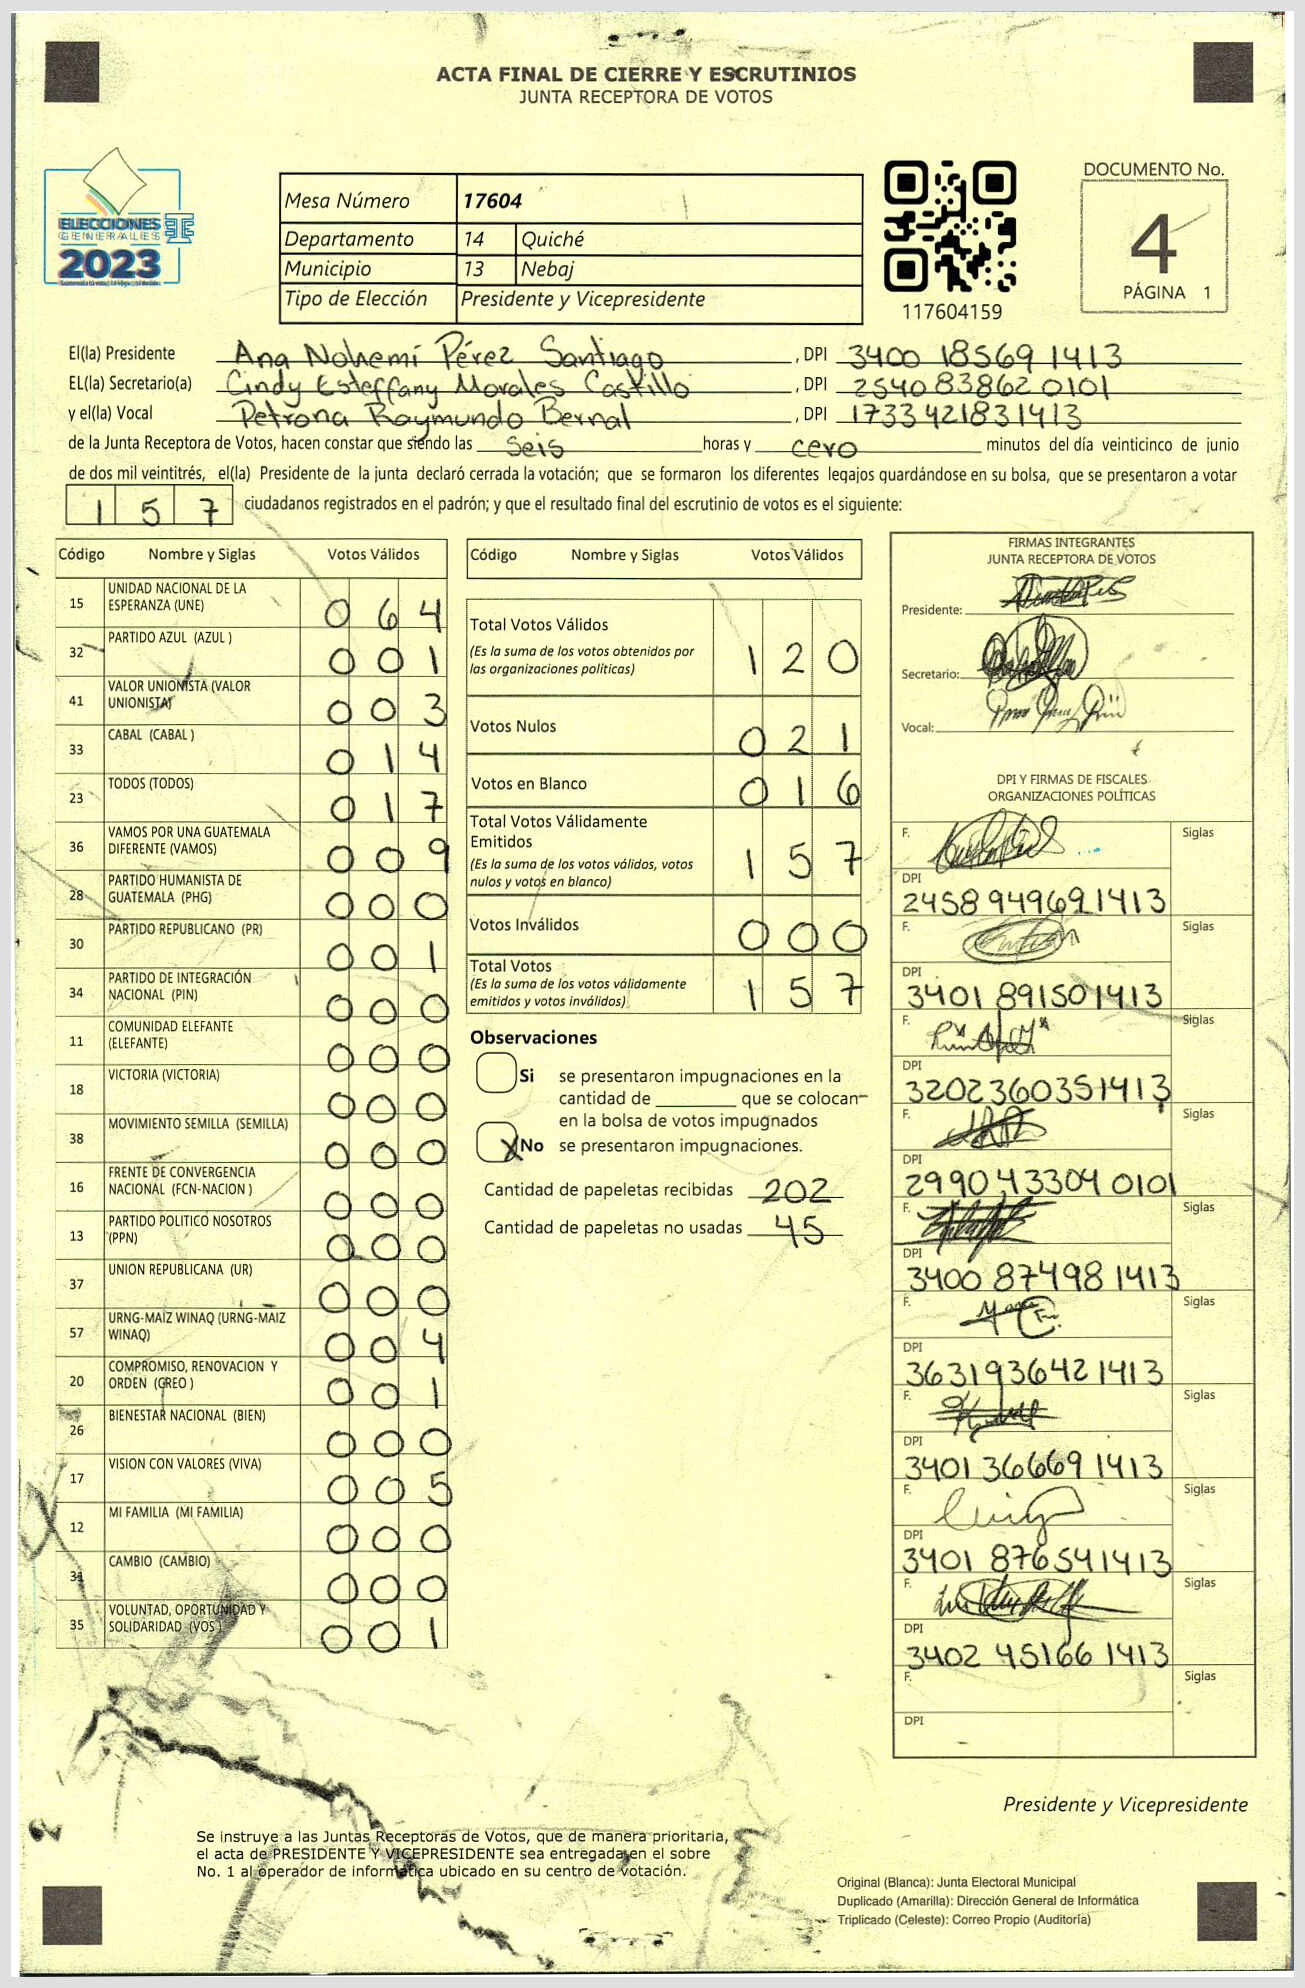 ACTA FINAL DE CIERRE Y ESCRUTINIOS
JUNTA RECEPTORA DE VOTOS
ELECCIONES
GENERALES
2023
Mesa Número 17604
Departamento 14 Quiché
Municipio 13 Nebaj
Tipo de Elección Presidente y Vicepresidente
117604159
DOCUMENTO No.
4
PÁGINA 1
El(la) Presidente Ana Nohemí Pérez Santiago, DPI 3400 18569 1413
EL(la) Secretario(a) Cindy Esteffany Morales Castillo, DPI 2540 83862 0101
y el(la) Vocal Petrona Raymundo Bernal, DPI 1733421831413
de la Junta Receptora de Votos, hacen constar que siendo las seis horas y cero minutos del día veinticinco de junio
de dos mil veintitrés, el(la) Presidente de la junta declaró cerrada la votación; que se formaron los diferentes legajos quardándose en su bolsa, que se presentaron a votar
157 ciudadanos registrados en el padrón; y que el resultado final del escrutinio de votos es el siguiente:
Código Nombre y Siglas Votos Válidos
15 UNIDAD NACIONAL DE LA ESPERANZA (UNE) 064
32 PARTIDO AZUL (AZUL ) 001
41 VALOR UNIONISTA (VALOR UNIONISTA) 003
33 CABAL (CABAL ) 014
23 TODOS (TODOS) 017
36 VAMOS POR UNA GUATEMALA DIFERENTE (VAMOS) 009
28 PARTIDO HUMANISTA DE GUATEMALA (PHG) 000
30 PARTIDO REPUBLICANO (PR) 001
34 PARTIDO DE INTEGRACIÓN NACIONAL (PIN) 000
11 COMUNIDAD ELEFANTE (ELEFANTE) 000
18 VICTORIA (VICTORIA) 000
38 MOVIMIENTO SEMILLA (SEMILLA) 000
16 FRENTE DE CONVERGENCIA NACIONAL (FCN-NACION ) 000
13 PARTIDO POLITICO NOSOTROS (PPN) 000
37 UNION REPUBLICANA (UR) 000
57 URNG-MAIZ WINAQ (URNG-MAIZ WINAQ) 004
20 COMPROMISO, RENOVACION Y ORDEN (CREO ) 001
26 BIENESTAR NACIONAL (BIEN) 000
17 VISION CON VALORES (VIVA) 005
12 MI FAMILIA (MI FAMILIA) 000
31 CAMBIO (CAMBIO) 000
35 VOLUNTAD, OPORTUNIDAD Y SOLIDARIDAD (VOS ) 001
Código Nombre y Siglas Votos Válidos
Total Votos Válidos 120
(Es la suma de los votos obtenidos por
las organizaciones políticas)
Votos Nulos 021
Votos en Blanco 016
Total Votos Válidamente
Emitidos 157
(Es la suma de los votos válidos, votos
nulos y votos en blanco)
Votos Inválidos 000
Total Votos 157
(Es la suma de los votos válidamente
emitidos y votos inválidos)
Observaciones
Si se presentaron impugnaciones en la
cantidad de ________ que se colocan
en la bolsa de votos impugnados
X No se presentaron impugnaciones.
Cantidad de papeletas recibidas 202
Cantidad de papeletas no usadas 45
FIRMAS INTEGRANTES
JUNTA RECEPTORA DE VOTOS
Presidente:
Secretario:
Vocal:
DPI Y FIRMAS DE FISCALES
ORGANIZACIONES POLÍTICAS
F. Siglas
DPI
2458 94969 1413
F. Siglas
DPI
3401 89150 1413
F. Siglas
DPI
3202360351413
F. Siglas
DPI
2990 43304 0101
F. Siglas
DPI
3400 87498 1413
F. Siglas
DPI
3631936421413
F. Siglas
DPI
3401 36669 1413
F. Siglas
DPI
3401 876541413
F. Siglas
DPI
3402 45166 1413
F. Siglas
DPI
Presidente y Vicepresidente
Se instruye a las Juntas Receptoras de Votos, que de manera prioritaria,
el acta de PRESIDENTE Y VICEPRESIDENTE sea entregada en el sobre
No. 1 al operador de informática ubicado en su centro de votación.
Original (Blanca): Junta Electoral Municipal
Duplicado (Amarilla): Dirección General de Informática
Triplicado (Celeste): Correo Propio (Auditoría)